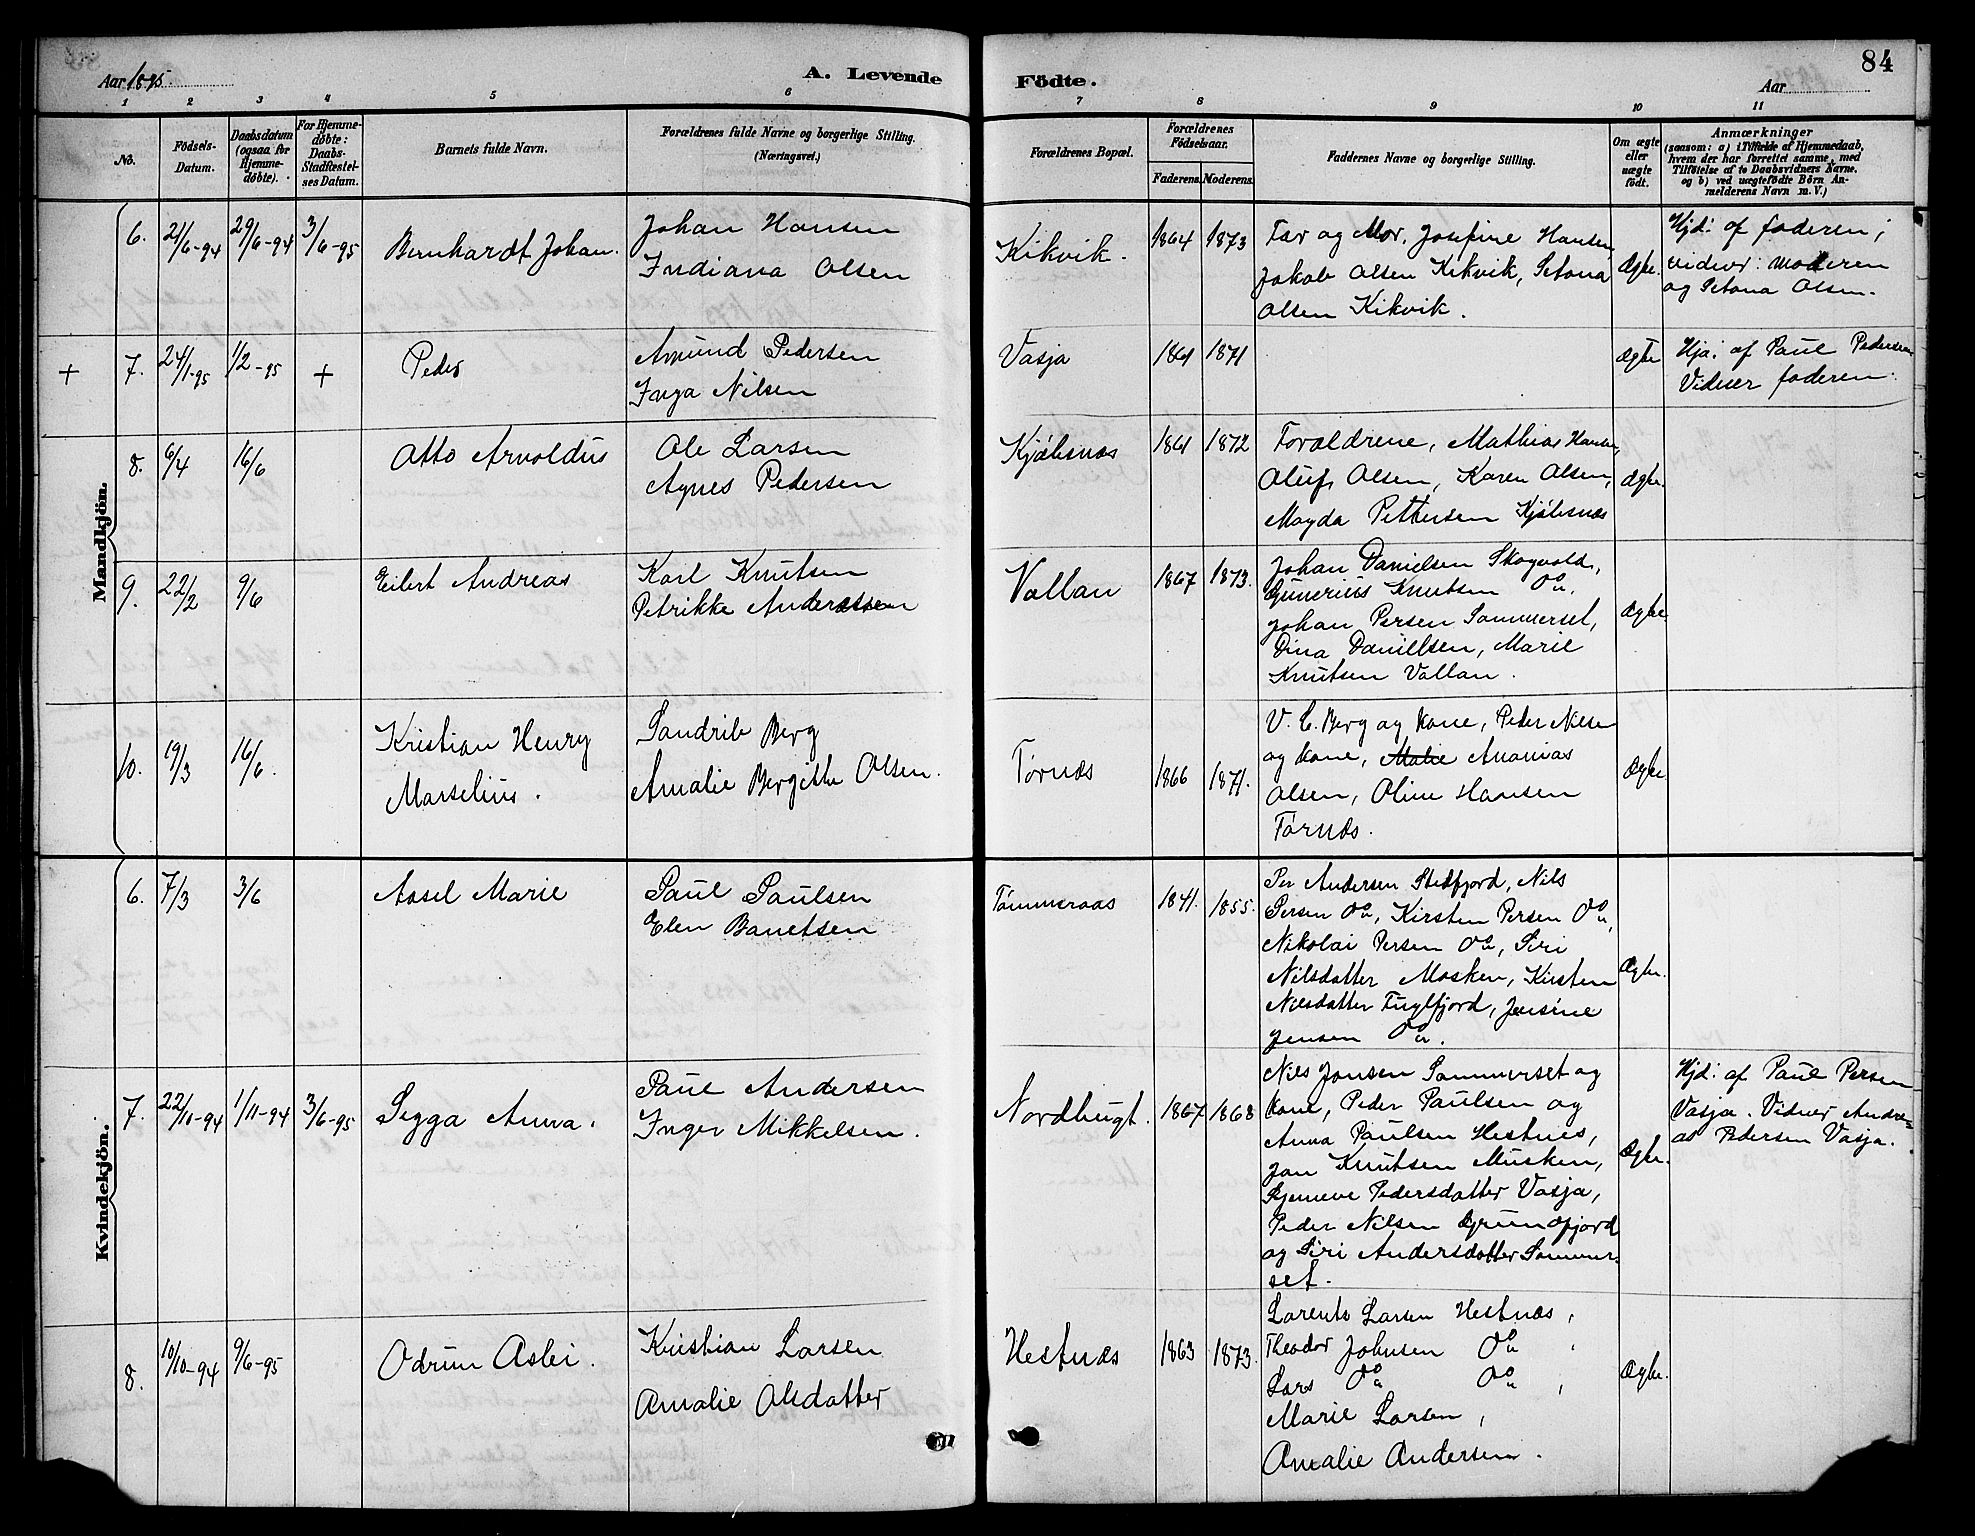 84
Aar 1895.
A. Levende
Födte.
Aar
1 2 3 4 5 6 7 8 9 10 11
No.
Födsels-Datum.
Daabsdatum (ogsaa for Hjemme-döbte).
For Hjemme-döbte: Daabs-Stadfæstel-ses Datum.
Barnets fulde Navn.
Forældrenes fulde Navne og borgerlige Stilling.
(Næringsvei.)
Forældrenes Bopæl.
Forældrenes Födselsaar.
Faderens. Moderens.
Faddernes Navne og borgerlige Stilling.
Om ægte eller uægte födt.
Anmærkninger
(saasom: a) i Tilfælde af Hjemmedaab,
hvem der har forrettet samme, med
Tilföielse af to Daabsvidners Navne.
og b) ved uægtefödte Börn An-
melderens Navn m. V.)
Mandkjön.
6. 21/6-94 29/6-94 3/6-95 Bernhardt Johan.
Johan Hansen
Indiana Olsen
Kikvik. 1864 1873
Far og Mor, Josefine Hansen
Jakob Olsen Kikvik, Setona
Olsen Kikvik.
Ægte.
Hjd: af faderen;
vidner: moderen
og Setona Olsen.
+ 7. 24/1-95 1/2-95 + Peder
Amund Pedersen
Inga Nilsen
Vasja 1861 1871
Ægte
Hja: af Paul Pedersen
Vidner faderen.
8. 6/4 16/6 Otto Arnoldus
Ole Larsen
Agnes Pedersen
Kjøbsnæs 1861 1872
Forældrene, Mathias Hansen,
Oluf Olsen, Karen Olsen,
Magda Pettersen Kjøbsnæs
Ægte.
9. 22/2 9/6 Eilert Andreas
Karl Knutsen
Petrikke Anderssen
Vallan 1867 1873.
Johan Danielsen Skogvold,
Gunerius Knutsen Do,
Johan Persen Sommerset,
Dina Daniellsen, Marie
Knutsen Vallan.
Ægte
10. 19/3 16/6. Kristian Henry
Marselius.
Sandrib Berg
Amalie Bergette Olsen.
Tørnæs 1866 1871.
V. C. Berg og Kone, Peder Nilsen
og Kone, Malie Ananias
Olsen, Oline Hansen
Tørnæs.
Ægte
Kvindekjön.
6. 7/3 3/6 Assel Marie
Paul Paulsen
Elen Banetsen
Tømmeraas 1841. 1855.
Per Andersen Stedfjord, Nils
Persen Do, Kirsten Persen Do,
Nikolai Persen Do, Siri
Nilsdatter Mosken, Kirsten
Nilsdatter Fuglfjord, Jensine
Jensen Do.
Ægte.
7. 22/10-94 1/11-94 3/6-95 Sigga Anna.
Paul Andersen
Inger Mikkelsen.
Nordbugt. 1867 1868
Nils Jonsen Sommerset og
Kone, Peder Paulsen og
Anna Paulsen Hestnes,
Jan Knutsen Musken,
Pedersdatter Vasja,
Peder Nilsen Grundfjord
og Siri Andersdatter Sommer-
set.
Ægte.
Hjd: af Paul Persen
Vasja. Vidner Andre-
as Pedersen Vasja.
8. 10/10-94 9/6-95 Odrun Aslei.
Kristian Larsen
Amalie Olsdatter
Hestnæs 1863 1873.
Lorents Larsen Hestnæs,
Theodor Johnsen Do,
Lars Do Do,
Marie Larsen,
Amalie Andersen.
Ægte.